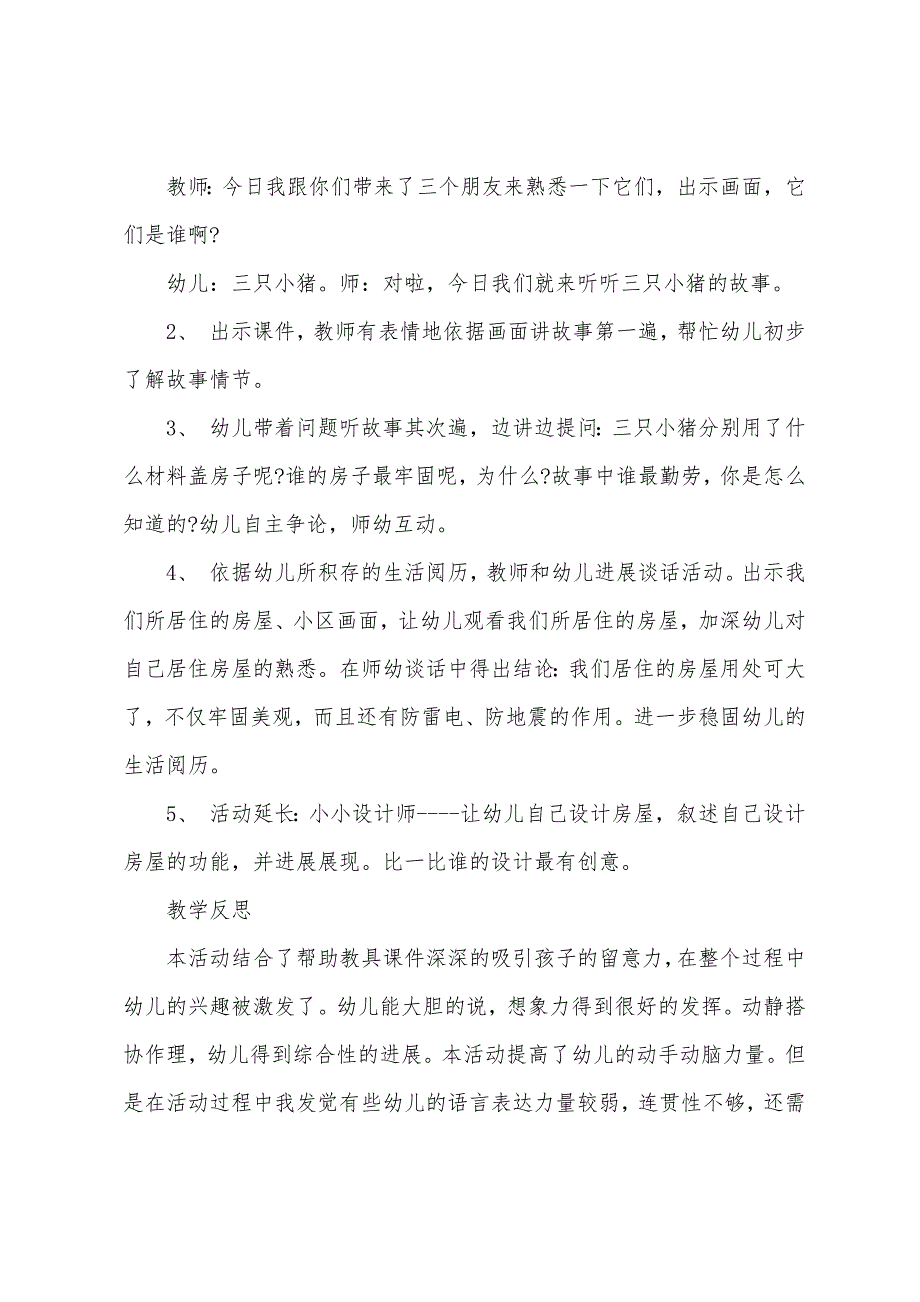 教师：今日我跟你们带来了三个朋友来熟悉一下它们，出示画面，它
们是谁啊?
幼儿：三只小猪。师：对啦，今日我们就来听听三只小猪的故事。
2、 出示课件，教师有表情地依据画面讲故事第一遍，帮忙幼儿初步
了解故事情节。
3、 幼儿带着问题听故事其次遍，边讲边提问：三只小猪分别用了什
么材料盖房子呢?谁的房子最牢固呢，为什么?故事中谁最勤劳，你是怎么
知道的?幼儿自主争论，师幼互动。
4、 依据幼儿所积存的生活阅历，教师和幼儿进展谈话活动。出示我
们所居住的房屋、小区画面，让幼儿观看我们所居住的房屋，加深幼儿对
自己居住房屋的熟悉。在师幼谈话中得出结论：我们居住的房屋用处可大
了，不仅牢固美观，而且还有防雷电、防地震的作用。进一步稳固幼儿的
生活阅历。
5、 活动延长：小小设计师----让幼儿自己设计房屋，叙述自己设计
房屋的功能，并进展展现。比一比谁的设计最有创意。
教学反思
本活动结合了帮助教具课件深深的吸引孩子的留意力，在整个过程中
幼儿的兴趣被激发了。幼儿能大胆的说，想象力得到很好的发挥。动静搭
协作理，幼儿得到综合性的进展。本活动提高了幼儿的动手动脑力量。但
是在活动过程中我发觉有些幼儿的语言表达力量较弱，连贯性不够，还需